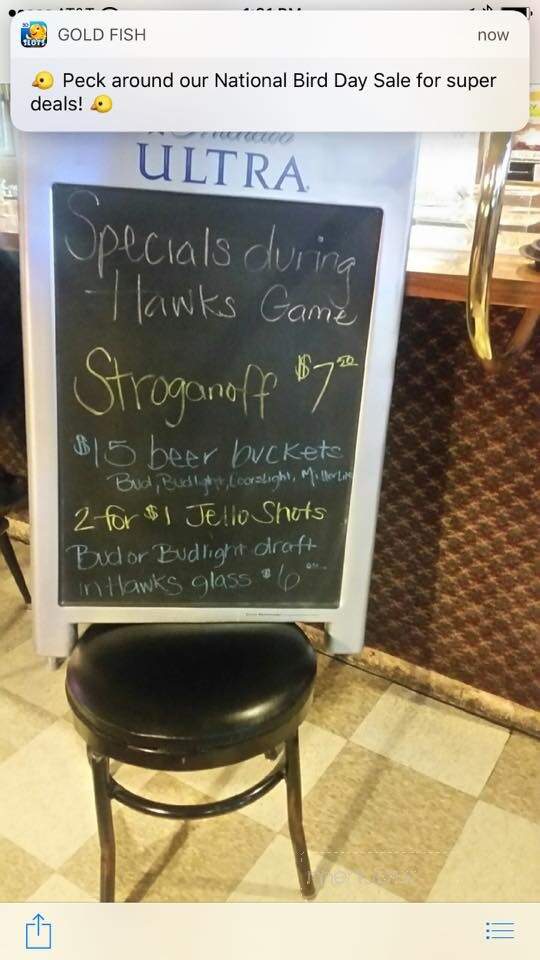 GOLD FISH
now
Peck around our National Bird Day Sale for super
deals!
ULTRA
Specials during
Hawks Game
Stroganoff $7.50
$15 beer buckets
Bud, Budlight, Coorslight, Miller Lite
2 for $1 Jello Shots
Bud or Budlight draft
in Hawks glass $6